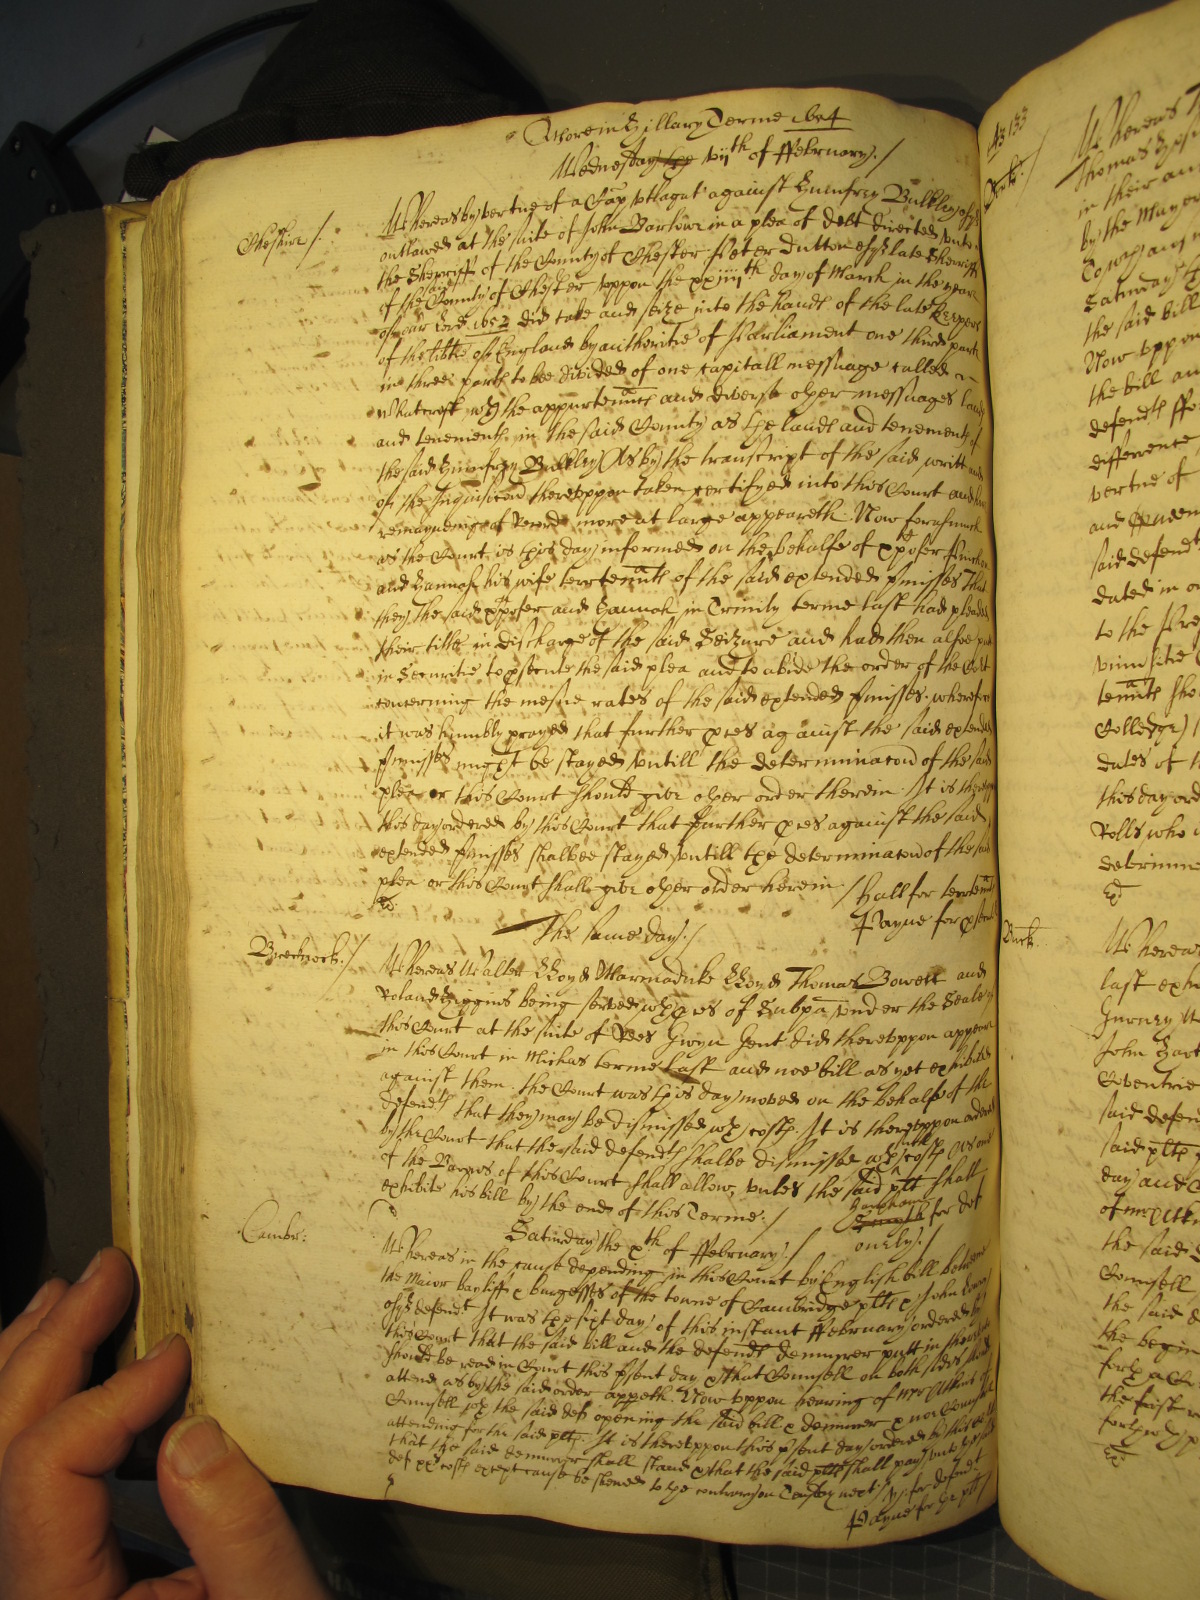 More in Hillary Terme 1654
Wednesday the vijth of ffebruary./
Cheshire /.
Whereas by vertue of a Cap vtlagat against Humfrey Bulkley esqr
outlawed at the suite of John Barlowe in a plea of debt directed vnto
the Sherriffe of the County of Chester Peter Dutton esqr late Sherriffe
of the said County of Chester vppon the xxiiijth day of March in the yeare
of our Lord 1652 did take and seize into the hands of the late Keepers
of the libtie of England by authoritie of Parliament one third parte
in three parts to bee divided of one capitall messuage called
Whatcroft wth the appurtennts and diverse other messuages lands
and tenements in the said County as the lands and tenements of
the said Humfrey Bulkley As by the transcript of the said writt and
of the Inquisicon therevppon taken certifyed into this Court and here
remayneinge of Record more at large appeareth. Now forasmuch
as the Court is this day informed on the behalfe of xpofer
and Hannah his wife terrtennts of the said extended pmisses That
they the said xpofer and Hannah in Trinity terme last had pleaded
their title in discharge of the said Seizure and had then alsoe putt
in Securitie to psecute the said plea and to abide the order of the Cort
concerning the mesne rates of the said extended pmisses, wherefore
it was humbly prayed that further pces against the said extended
pmisses might be stayed vntill the determinacon of the said
plea or this Court should give other order therein. It is therevppon
this day ordered by this Court that further pces against the said
extended pmisses shalbee stayed vntill the determinacon of the said
plea or this Court shall give other order herein. / Hall for terrtennts
Payne for
The same day./
Brecknock./
Whereas Walter Lloyd Marmaduke Lloyd Thomas Bowett and
Roland Higgins being served wth pces of Subpa vnder the Seale of
this Court at the suite of Rees Gwyn Gent did therevppon appeare
in this Court in Michas terme last and noe bill as yet exhibited
against them. the Court was this day moved on the behalfe of the
defendts that they may be dismissed wth costs. It is therevppon ordered
by the Court that the said defendts shalbe dismissed wth such costs as one
of the Barons of this Court shall allow, vnles the said plt shall
exhibite his bill by the end of this Terme./
for def
onely./
Cambr:
Saturday the xth of ffebruary./
Whereas in the cause depending in this Court by English bill betweene
the Maior bayliffs & burgesses of the towne of Cambridge plts & John
esqr defendt It was the sixt day of this instant ffebruary ordered by
this Court that the said bill and the defendts demurrer putt in therevnto
should be read in Court this psent day & that Counsell on both sides should
attend as by the said order appeth. Now vppon hearing of Mr Atkins of
Counsell wth the said deft opening the said bill & demurrer & noe Counsell
attending for the said plts. It is therevppon this psent day ordered by this Court
that the said demurrer shall stand & that the said plts shall pay vnto the said
def xxs costs except cause be shewed to the contrary on Tuesday next./ for defendt
Payne for the plts
43 133
Berks:
Whereas
Thomas
in their an
by the Mayor
Company
Saturday
the said bill
Now vppon
the bill an
defendts ffo
difference
vertue of
said defendt
dated in
to the
tennts sho
Colledge)
dates of th
this day ord
Rolls who
determine
Buck.
Whereas
last exhi
John Hart
Coventrie
said defen
said plts
day and
of Mr Atkin
the said
Counsell
the said d
the begin
the first